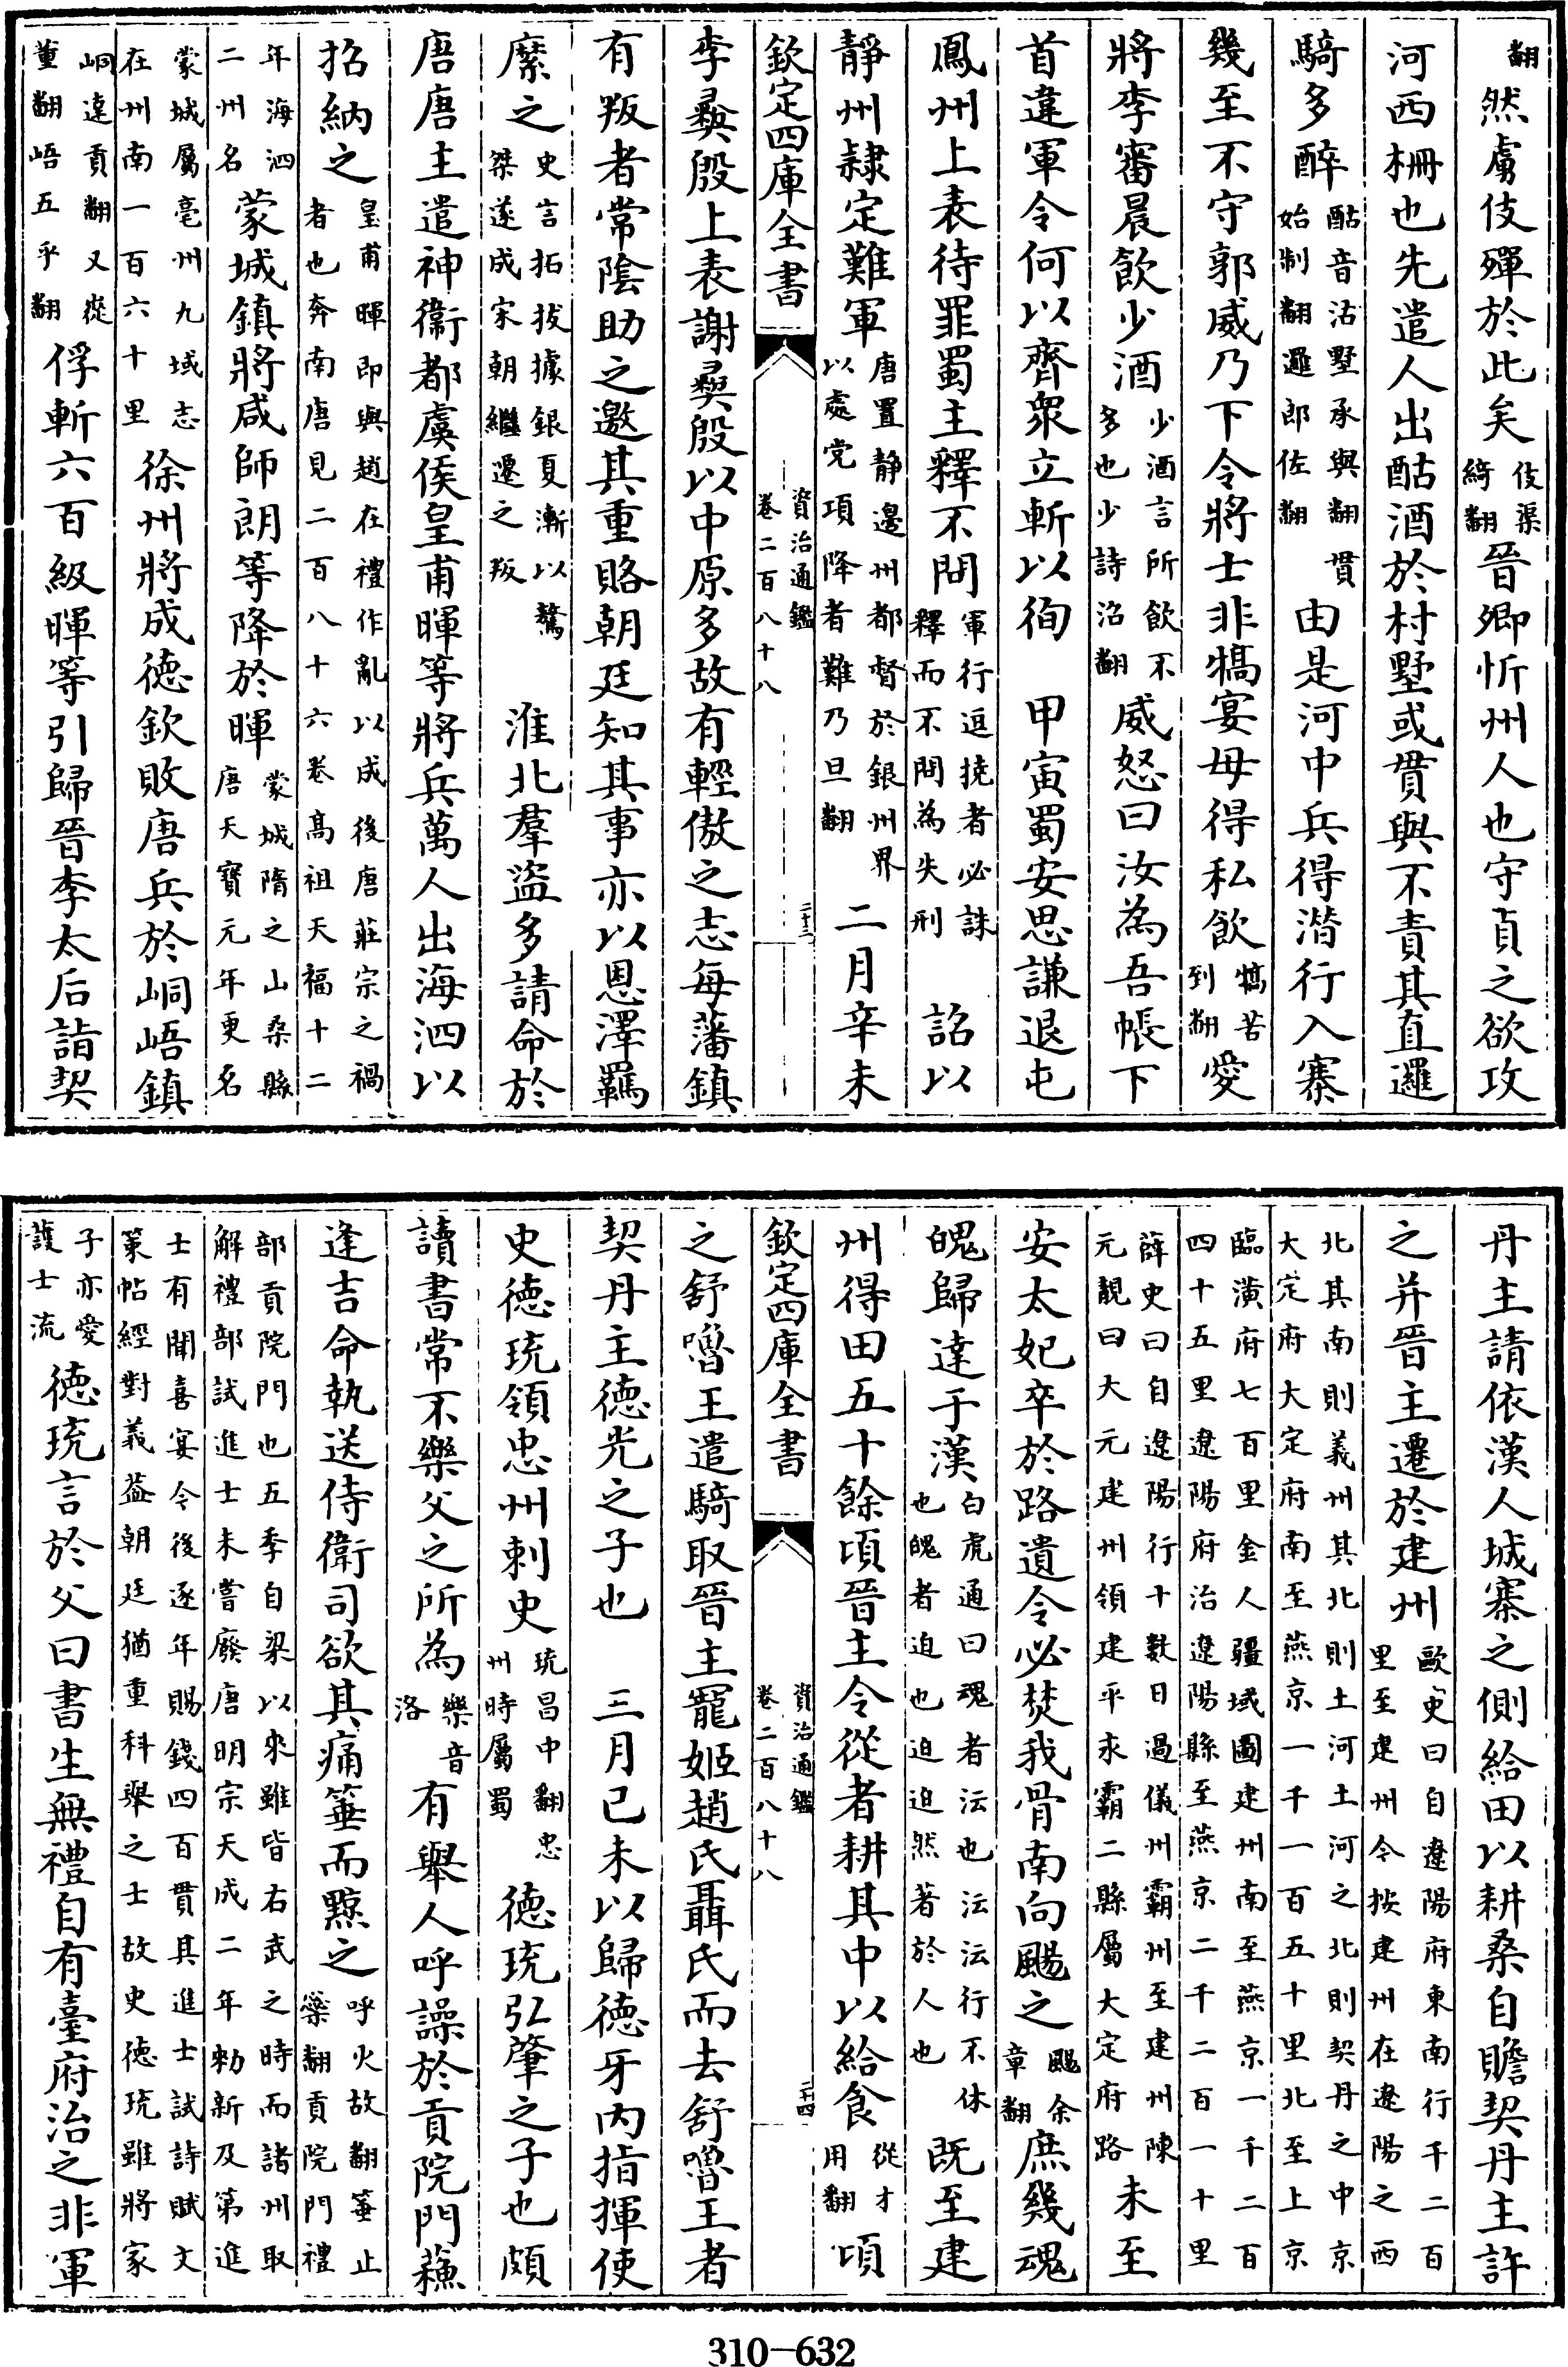 翻然虜伎殫於此矣伎渠綺翻晉卿忻州人也守貞之欲攻
河西柵也先遣人出酤酒於村墅或貰與不責其直邏
騎多醉酤音沽墅承與翻貰始制翻邏郎佐翻由是河中兵得潛行入寨
幾至不守郭威乃下令將士非犒宴毋得私飲犒苦到翻愛
將李審晨飲少酒少酒言所飲不多也少詩沼翻威怒曰汝為吾帳下
首違軍令何以齊衆立斬以徇　甲寅蜀安思謙退屯
鳳州上表待罪蜀主釋不問軍行逗撓者必誅釋而不問為失刑　詔以
靜州隷定難軍唐置静邊州都督於銀州界以處党項降者難乃旦翻　二月辛未
欽定四庫全書　資治通鑑卷二百八十八　二十三
李彝殷上表謝彝殷以中原多故有輕傲之志每藩鎮
有叛者常陰助之邀其重賂朝廷知其事亦以恩澤羈
縻之史言拓拔據銀夏漸以驁桀遂成宋朝繼遷之叛　淮北羣盜多請命於
唐唐主遣神衞都虞侯皇甫暉等將兵萬人出海泗以
招納之皇甫暉即與趙在禮作亂以成後唐莊宗之禍者也奔南唐見二百八十六卷髙祖天福十二
年海泗二州名蒙城鎮將咸師朗等降於暉蒙城隋之山桑縣唐天寶元年更名
蒙城屬亳州九域志在州南一百六十里徐州將成德欽敗唐兵於峒峿鎮
峒達貢翻又徒董翻峿五乎翻俘斬六百級暉等引歸晉李太后詣契
丹主請依漢人城寨之側給田以耕桑自贍契丹主許
之并晉主遷於建州歐史曰自遼陽府東南行千二百里至建州今按建州在遼陽之西
北其南則義州其北則土河土河之北則契丹之中京大定府大定府南至燕京一千一百五十里北至上京
臨潢府七百里金人疆域圖建州南至燕京一千二百四十五里遼陽府治遼陽縣至燕京二千二百一十里
薛史曰自遼陽行十數日過儀州霸州至建州陳元靚曰大元建州領建平永霸二縣屬大定府路未至
安太妃卒於路遺令必焚我骨南向颺之颺余章翻庶幾魂
魄歸達于漢白虎通曰魂者沄也沄沄行不休也魄者迫也迫迫然著於人也既至建
州得田五十餘頃晉主令從者耕其中以給食從才用翻頃
欽定四庫全書　資治通鑑卷二百八十八　二十四
之舒嚕王遣騎取晉主寵姬趙氏聶氏而去舒嚕王者
契丹主德光之子也　三月己未以歸德牙内指揮使
史德珫領忠州刺史珫昌中翻忠州時屬蜀　德珫弘肇之子也頗
讀書常不樂父之所為樂音洛有舉人呼譟於貢院門蘇
逢吉命執送侍衞司欲其痛箠而黥之呼火故翻箠止橤翻貢院門禮
部貢院門也五季自梁以來雖皆右武之時而諸州取解禮部試進士未嘗廢唐明宗天成二年勑新及第進
士有聞喜宴今後逐年賜錢四百貫其進士試詩賦文策帖經對義葢朝廷猶重科舉之士故史德珫雖將家
子亦愛護士流德珫言於父曰書生無禮自有臺府治之非軍
310-632